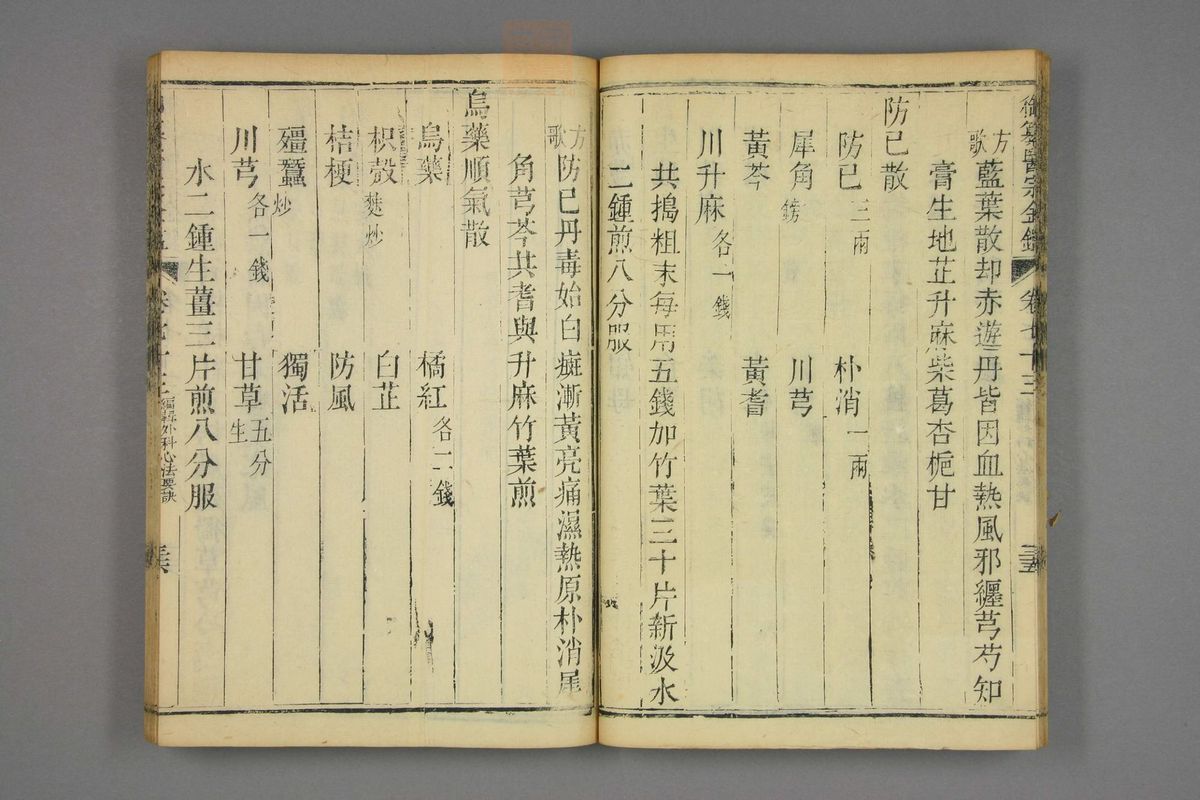 御纂醫宗金鑑 卷七十三 三五
方歌 藍葉散却赤遊丹皆因血熱風邪纏芎芍知
膏生地芷升麻柴葛杏梔甘
防已散
防已三兩 朴消一兩
犀角鎊 川芎
黃芩 黃耆
川升麻各一錢
共搗粗末每用五錢加竹葉三十片新汲水
二鍾煎八分服
方歌 防已丹毒始白癍漸黃亮痛濕熱原朴消犀
角芎芩共耆與升麻竹葉煎
烏藥順氣散
烏藥 橘紅各二錢
枳殼麩炒 白芷
桔梗 防風
殭蠶炒 獨活
川芎各一錢 甘草生五分
水二鍾生薑三片煎八分服
卷七十三 編輯外科心法要訣 三六